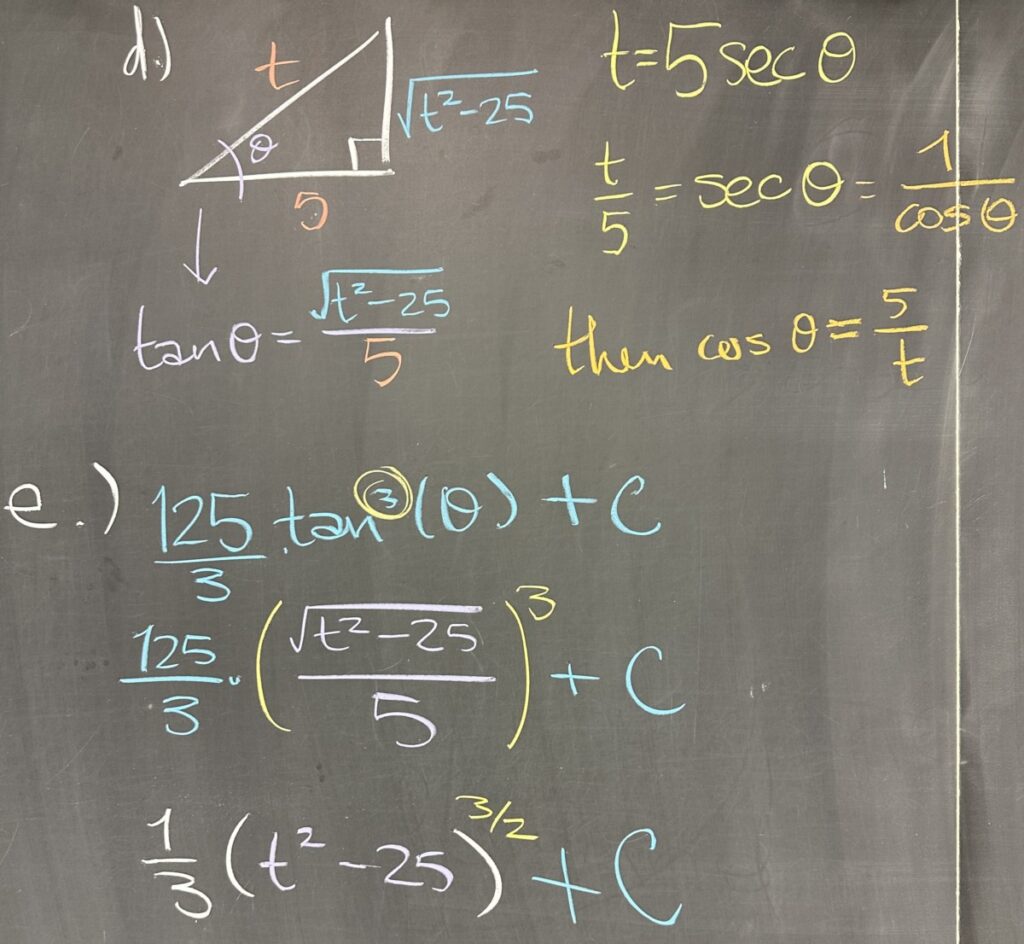 d.)
t
√(t²-25)
θ
5
t=5 sec θ
t/5 = sec θ = 1/cos θ
tan θ = √(t²-25)/5
then cos θ = 5/t
e.) 125/3 · tan³(θ) + C
125/3 · (√(t²-25)/5)³ + C
1/3 (t²-25)^3/2 + C